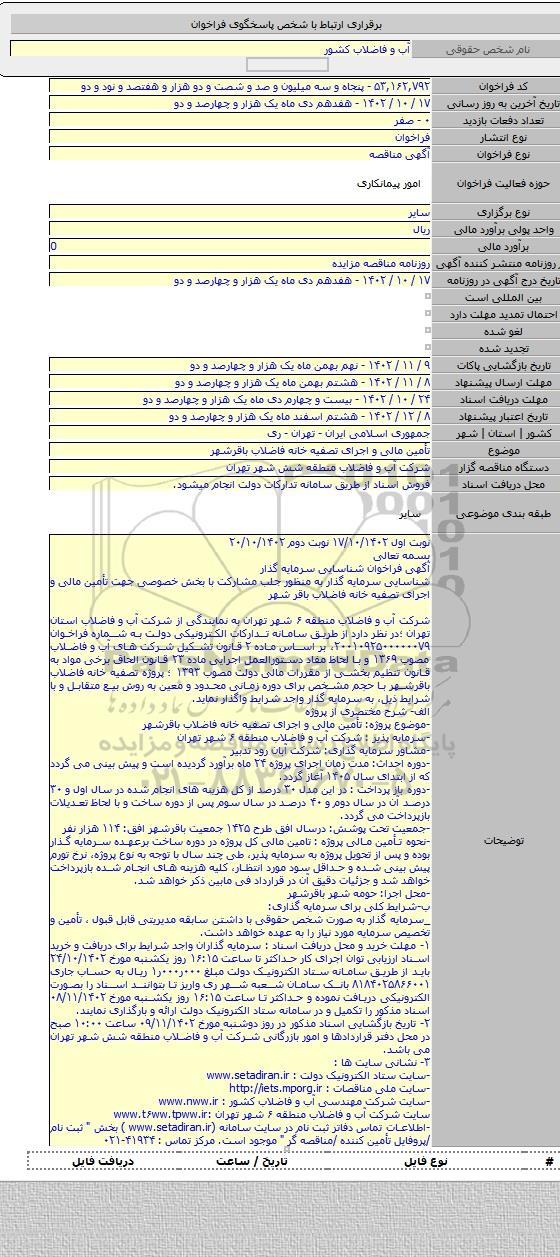 برقراری ارتباط با شخص پاسخگوی فراخوان
نام شخص حقوقی آب و فاضلاب کشور
کد فراخوان ۵۳,۱۶۲,۷۹۲ - پنجاه و سه میلیون و صد و شصت و دو هزار و هفتصد و نود و دو
تاریخ آخرین به روز رسانی ۱۷ / ۱۰ / ۱۴۰۲ - هفدهم دی ماه یک هزار و چهارصد و دو
تعداد دفعات بازدید ۰ - صفر
نوع انتشار فراخوان
نوع فراخوان آگهی مناقصه
حوزه فعالیت فراخوان امور پیمانکاری
نوع برگزاری سایر
واحد پولی برآورد مالی ریال
برآورد مالی 0
روزنامه منتشر کننده آگهی روزنامه مناقصه مزایده
تاریخ درج آگهی در روزنامه ۱۷ / ۱۰ / ۱۴۰۲ - هفدهم دی ماه یک هزار و چهارصد و دو
بین المللی است
احتمال تمدید مهلت دارد
لغو شده
تجدید شده
تاریخ بازگشایی پاکات ۹ / ۱۱ / ۱۴۰۲ - نهم بهمن ماه یک هزار و چهارصد و دو
مهلت ارسال پیشنهاد ۸ / ۱۱ / ۱۴۰۲ - هشتم بهمن ماه یک هزار و چهارصد و دو
مهلت دریافت اسناد ۲۴ / ۱۰ / ۱۴۰۲ - بیست و چهارم دی ماه یک هزار و چهارصد و دو
تاریخ اعتبار پیشنهاد ۸ / ۱۲ / ۱۴۰۲ - هشتم اسفند ماه یک هزار و چهارصد و دو
کشور | استان | شهر جمهوری اسلامی ایران - تهران - ری
موضوع تأمین مالی و اجرای تصفیه خانه فاضلاب باقرشهر
دستگاه مناقصه گزار شرکت آب و فاضلاب منطقه شش شهر تهران
محل دریافت اسناد فروش اسناد از طریق سامانه تدارکات دولت انجام میشود.
طبقه بندی موضوعی سایر
توضیحات
نوبت اول ۱۷/۱۰/۱۴۰۲ نوبت دوم ۲۰/۱۰/۱۴۰۲
بسمه تعالی
آگهی فراخوان شناسایی سرمایه گذار
شناسایی سرمایه گذار به منظور جلب مشارکت با بخش خصوصی جهت تأمین مالی و
اجرای تصفیه خانه فاضلاب باقر شهر
شرکت آب و فاضلاب منطقه ۶ شهر تهران به نمایندگی از شرکت آب و فاضلاب استان
تهران ؛در نظر دارد از طریق سامانه تدارکات الکترونیکی دولت به شماره فراخوان
۲۰۰۱۰۹۲۵۰۰۰۰۰۰۷۹، بر اساس ماده ۲ قانون تشکیل شرکت های آب و فاضلاب
مصوب ۱۳۶۹ و با لحاظ مفاد دستورالعمل اجرایی ماده ۲۳ قانون الحاق برخی مواد به
قانون تنظیم بخشی از مقررات مالی دولت مصوب ۱۳۹۳ ؛ پروژه تصفیه خانه فاضلاب
باقرشهر با حجم مشخص برای دوره زمانی محدود و معین به روش بیع متقابل و با
شرایط ذیل، به سرمایه گذار واجد شرایط واگذار نماید.
الف- شرح مختصری از پروژه
-موضوع پروژه: تأمین مالی و اجرای تصفیه خانه فاضلاب باقرشهر
-سرمایه پذیر : شرکت آب و فاضلاب منطقه ۶ شهر تهران
-مشاور سرمایه گذاری: شرکت آبان رود تدبیر
-دوره احداث: مدت زمان اجرای پروژه ۲۴ ماه برآورد گردیده است و پیش بینی می گردد
که از ابتدای سال ۱۴۰۵ آغاز گردد.
-دوره باز پرداخت : در این مدل ۳۰ درصد از کل هزینه های انجام شده در سال اول و ۳۰
درصد آن در سال دوم و ۴۰ درصد در سال سوم پس از دوره ساخت و با لحاظ تعدیلات
بازپرداخت می گردد.
-جمعیت تحت پوشش: درسال افق طرح ۱۴۲۵ جمعیت باقرشهر افق: ۱۱۴ هزار نفر
-نحوه تأمین مالی پروژه : تامین مالی کل پروژه در دوره ساخت برعهده سرمایه گذار
بوده و پس از تحویل پروژه به سرمایه پذیر، طی چند سال با توجه به نوع پروژه، نرخ تورم
پیش بینی شده و حداقل سود مورد انتظار، کلیه هزینه های انجام شده بازپرداخت
خواهد شد و جزئیات دقیق آن در قرارداد فی مابین ذکر خواهد شد.
-محل اجرا: حومه شهر باقرشهر
ب-شرایط کلی برای سرمایه گذاری:
_سرمایه گذار به صورت شخص حقوقی با داشتن سابقه مدیریتی قابل قبول ، تأمین و
تخصیص سرمایه مورد نیاز را به عهده خواهد داشت.
۱- مهلت خرید و محل دریافت اسناد : سرمایه گذاران واجد شرایط برای دریافت و خرید
اسناد ارزیابی توان اجرای کار حداکثر تا ساعت ۱۶:۱۵ روز یکشنبه مورخ ۲۴/۱۰/۱۴۰۲
باید از طریق سامانه ستاد الکترونیک دولت مبلغ ۱٫۰۰۰٫۰۰۰ ریال به حساب جاری
۸۱۸۴۰۲۵۸۶۶۰۰۱ بانک سامان شعبه شهر ری واریز تا بتوانند اسناد را بصورت
الکترونیکی دریافت نموده و حداکثر تا ساعت ۱۶:۱۵ روز یکشنبه مورخ ۰۸/۱۱/۱۴۰۲
اسناد مذکور را تکمیل و در سامانه ستاد الکترونیک دولت ارائه و بارگذاری نمایند.
۲- تاریخ بازگشایی اسناد مذکور در روز دوشنبه مورخ ۰۹/۱۱/۱۴۰۲ ساعت ۱۰:۰۰ صبح
در محل دفتر قراردادها و امور بازرگانی شرکت آب و فاضلاب منطقه شش شهر تهران
می باشد.
۳- نشانی سایت ها :
-سایت ستاد الکترونیک دولت : www.setadiran.ir
-سایت ملی مناقصات : http://iets.mporg.ir
-سایت شرکت مهندسی آب و فاضلاب کشور : www.nww.ir
سایت شرکت آب و فاضلاب منطقه ۶ شهر تهران :www.t۶ww.tpww.ir
-اطلاعات تماس دفاتر ثبت نام در سایت سامانه (www.setadiran.ir ) بخش " ثبت نام
/پروفایل تأمین کننده /مناقصه گر " موجود است. مرکز تماس : ۴۱۹۳۴-۰۲۱
# نوع فایل تاریخ / ساعت دریافت فایل